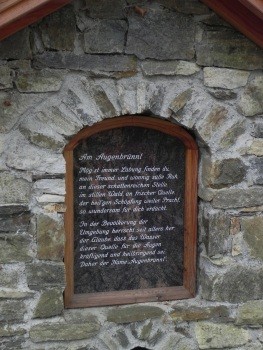 Am Augenbrünnl
Mög'st immer Labung finden du,
mein Freund, und wonnig süße Ruh
an dieser schattenreichen Stelle
im stillen Wald, an frischer Quelle
der heil'gen Schöpfung weiter Pracht
so wundersam für dich erdacht.
In der Bevölkerung der
Umgebung herrscht seit alters her
der Glaube, dass das Wasser
dieser Quelle für die Augen
kräftigend und heilbringend sei.
Daher der Name „Augenbrünnl".